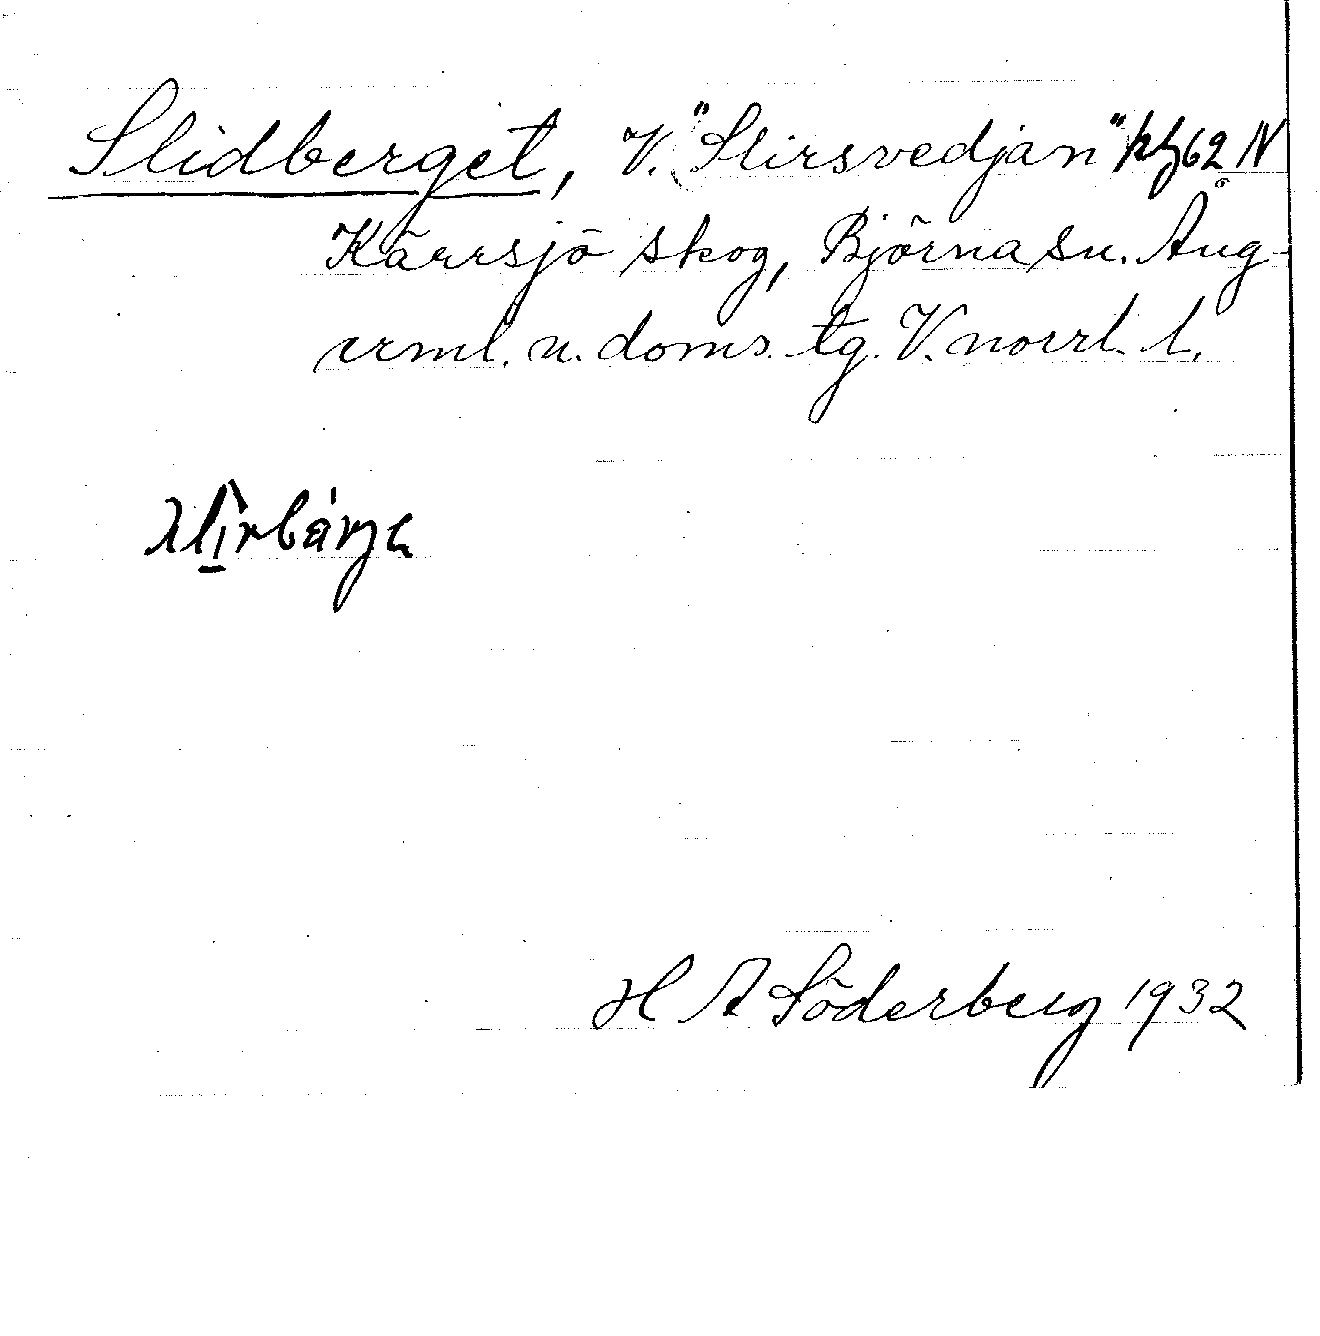 Slidberget, V. "Slirsvedjan" kbl 62 N
Kärrsjö skog, Björna sn. Ång-
erml. n. doms. tg. V. norrl. l.
H A Söderberg 1932